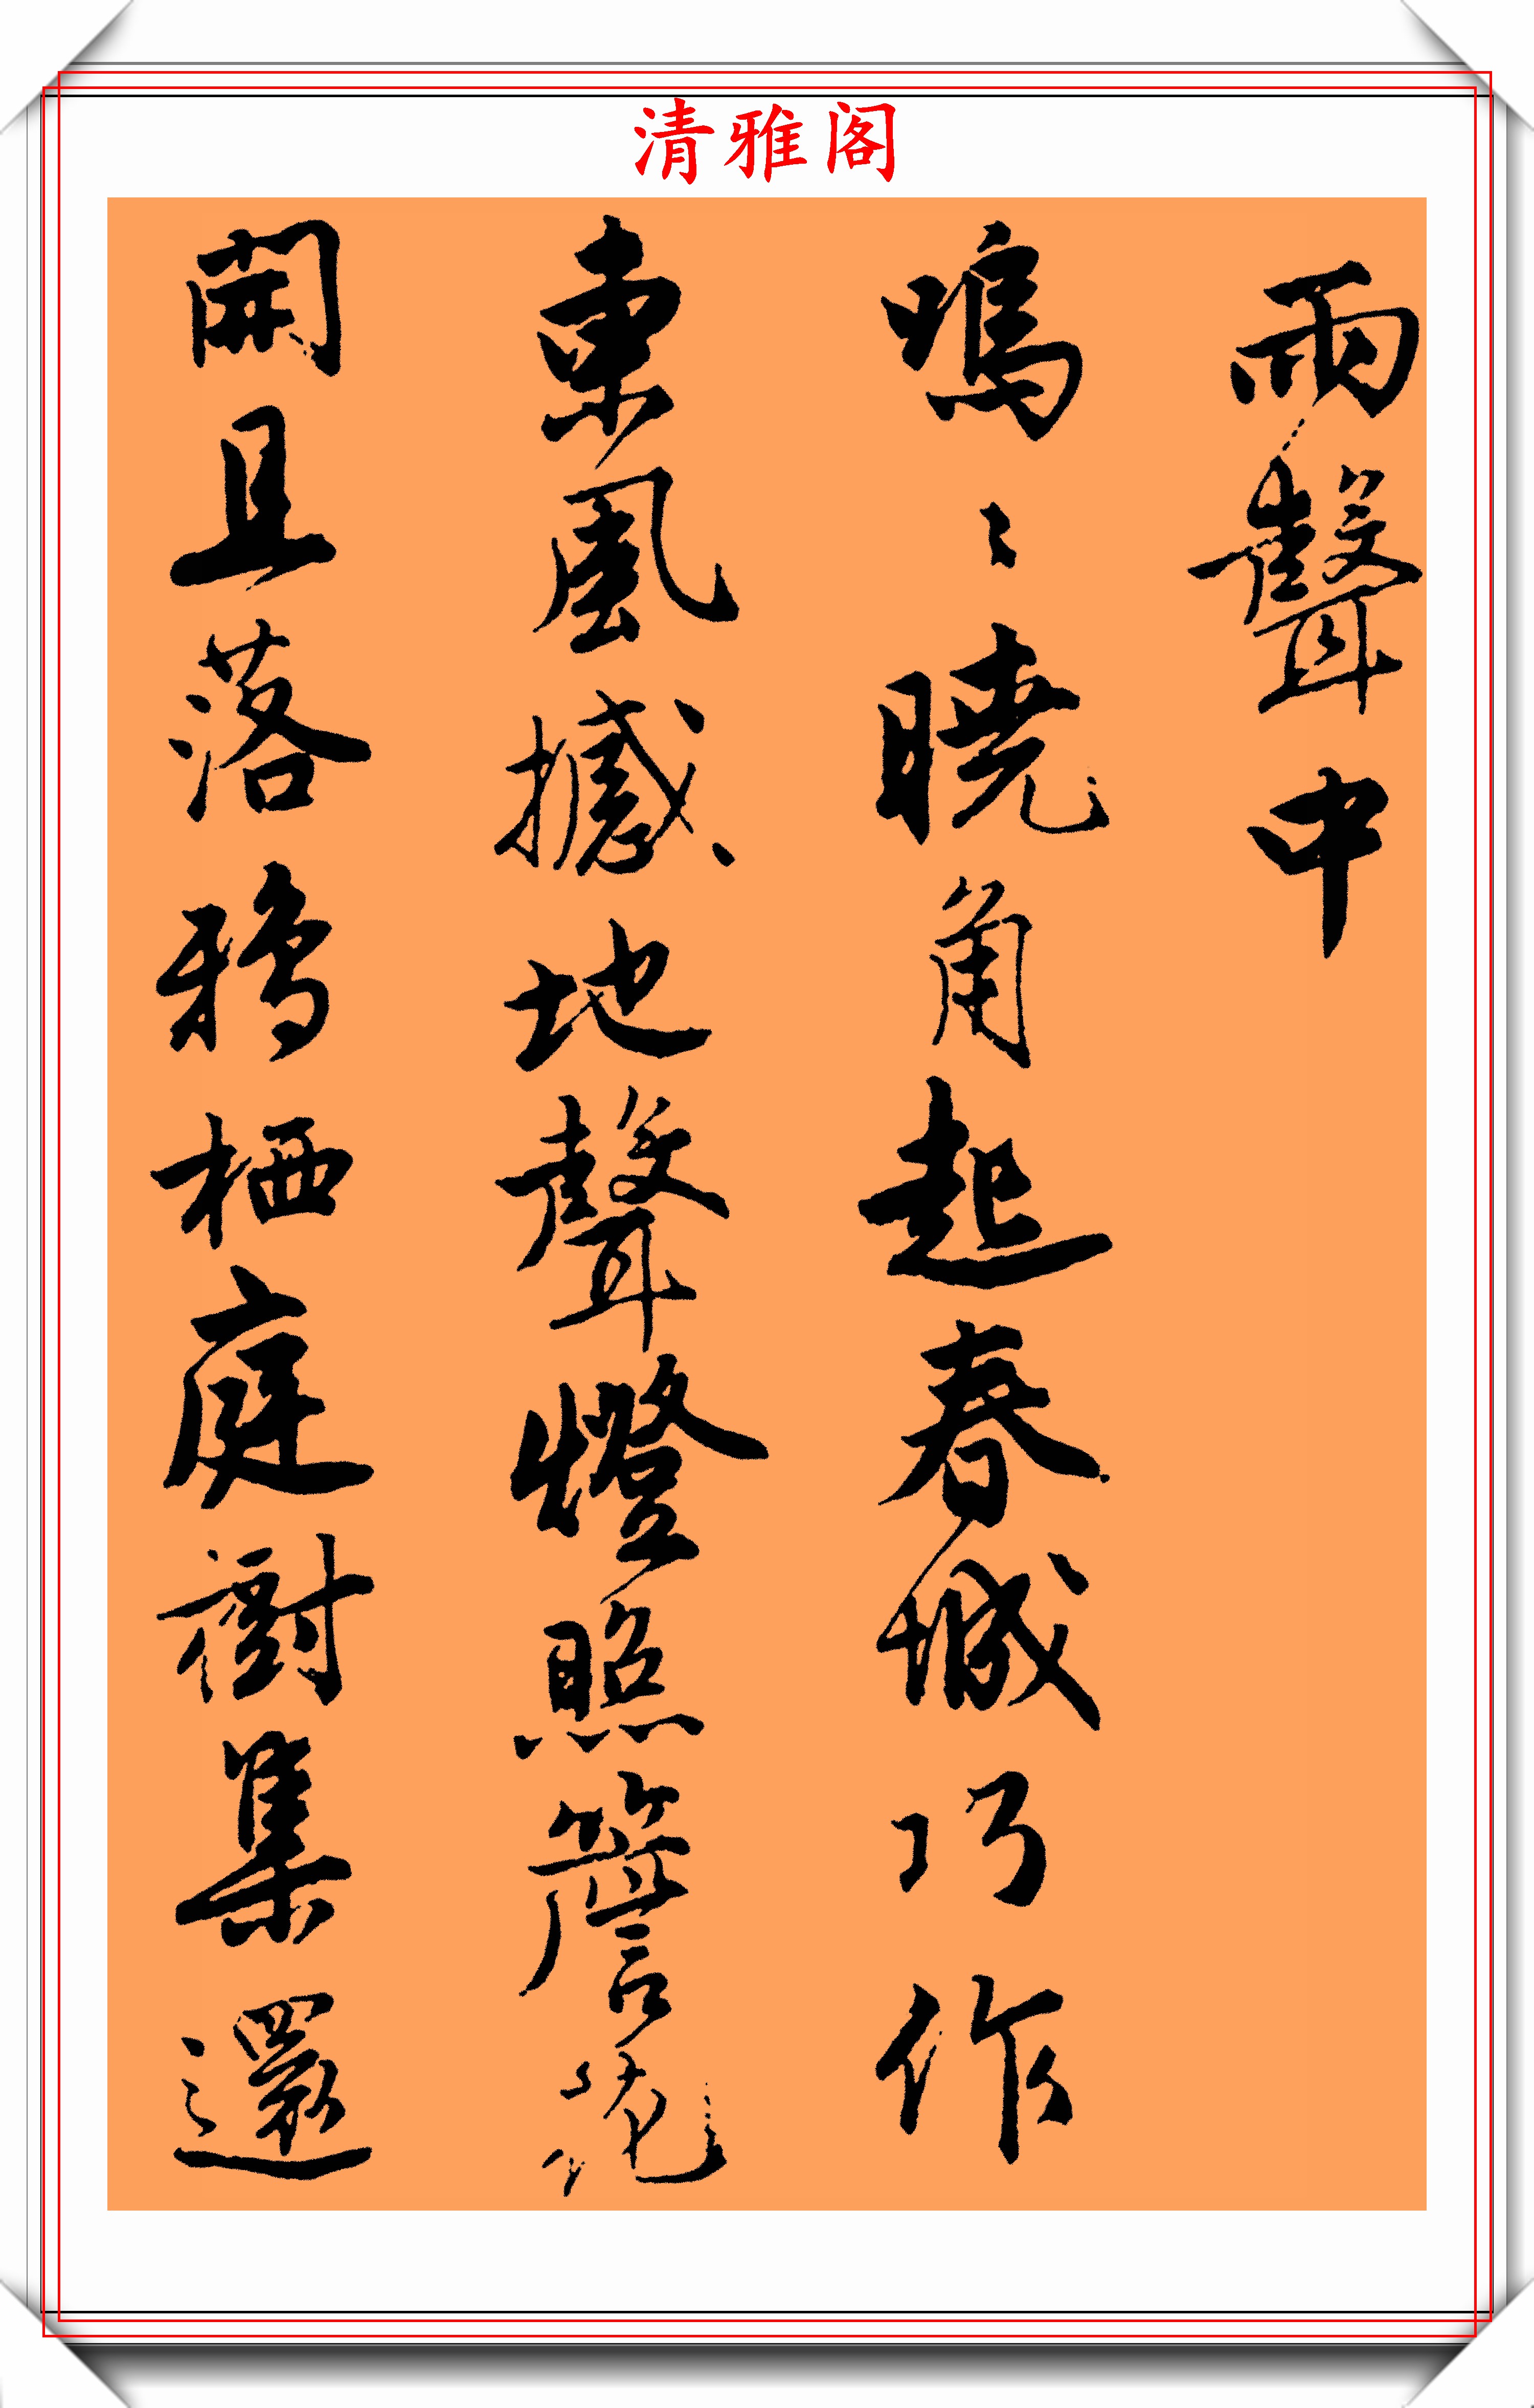 清雅阁
雨聲中
鳴〻曉角起春城巧作
東風撼地聲燈照簷花
開且落鴉栖庭樹集還